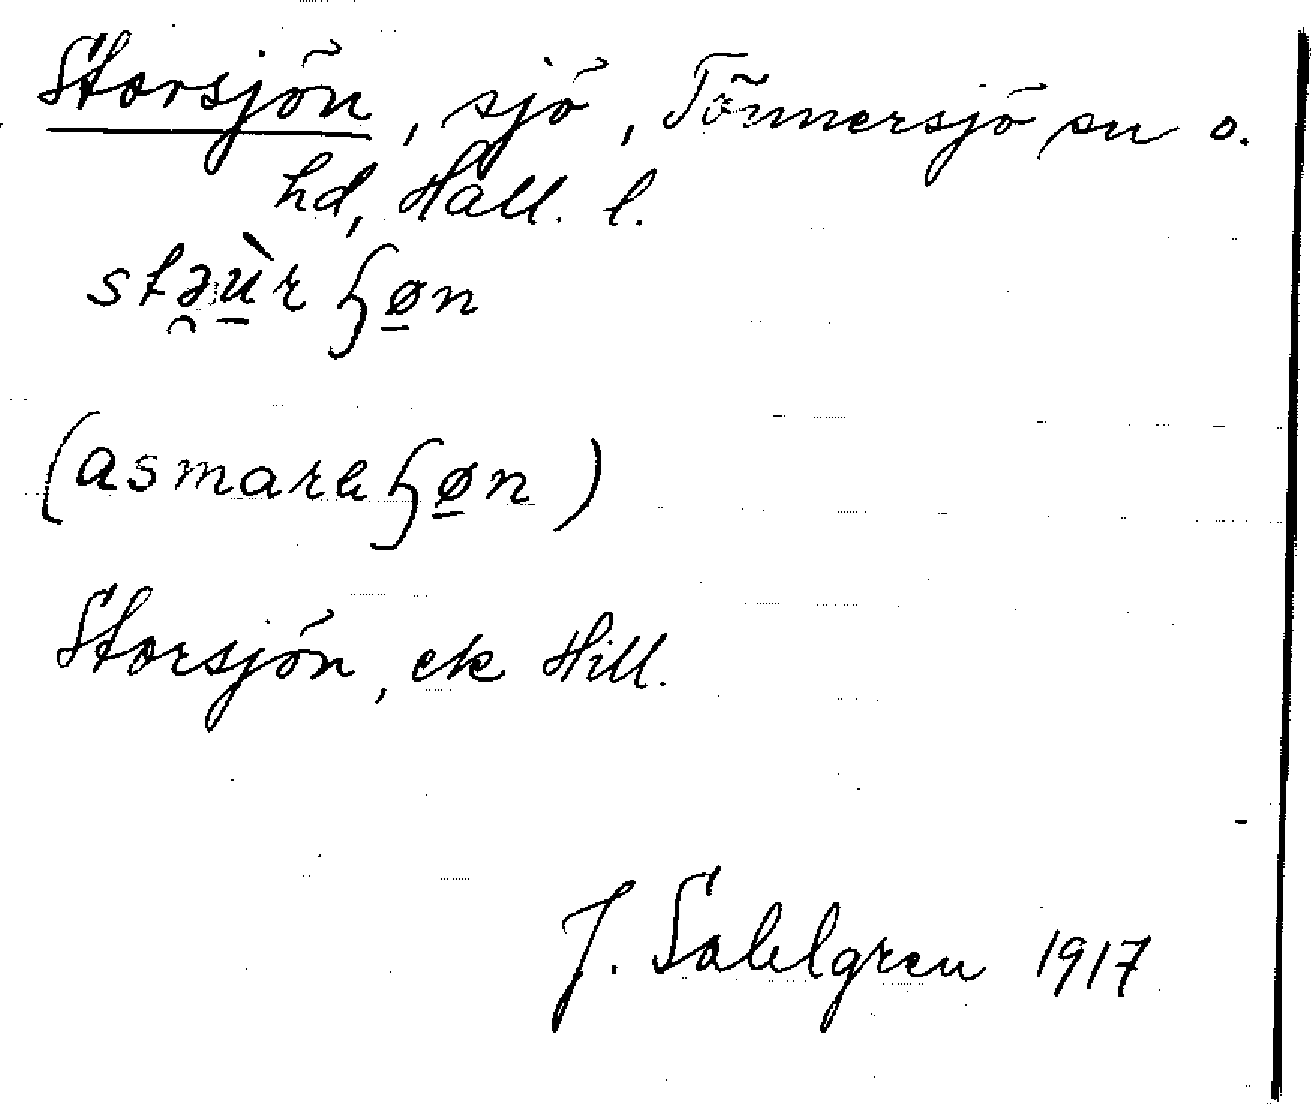 Storsjön, sjö, Tönnersjö sn o.
hd, Hall. l.
stə̯ù̠rɧø̠n
(asmaraɧø̠n)
Storsjön, ek Hill.
J. Sahlgren 1917